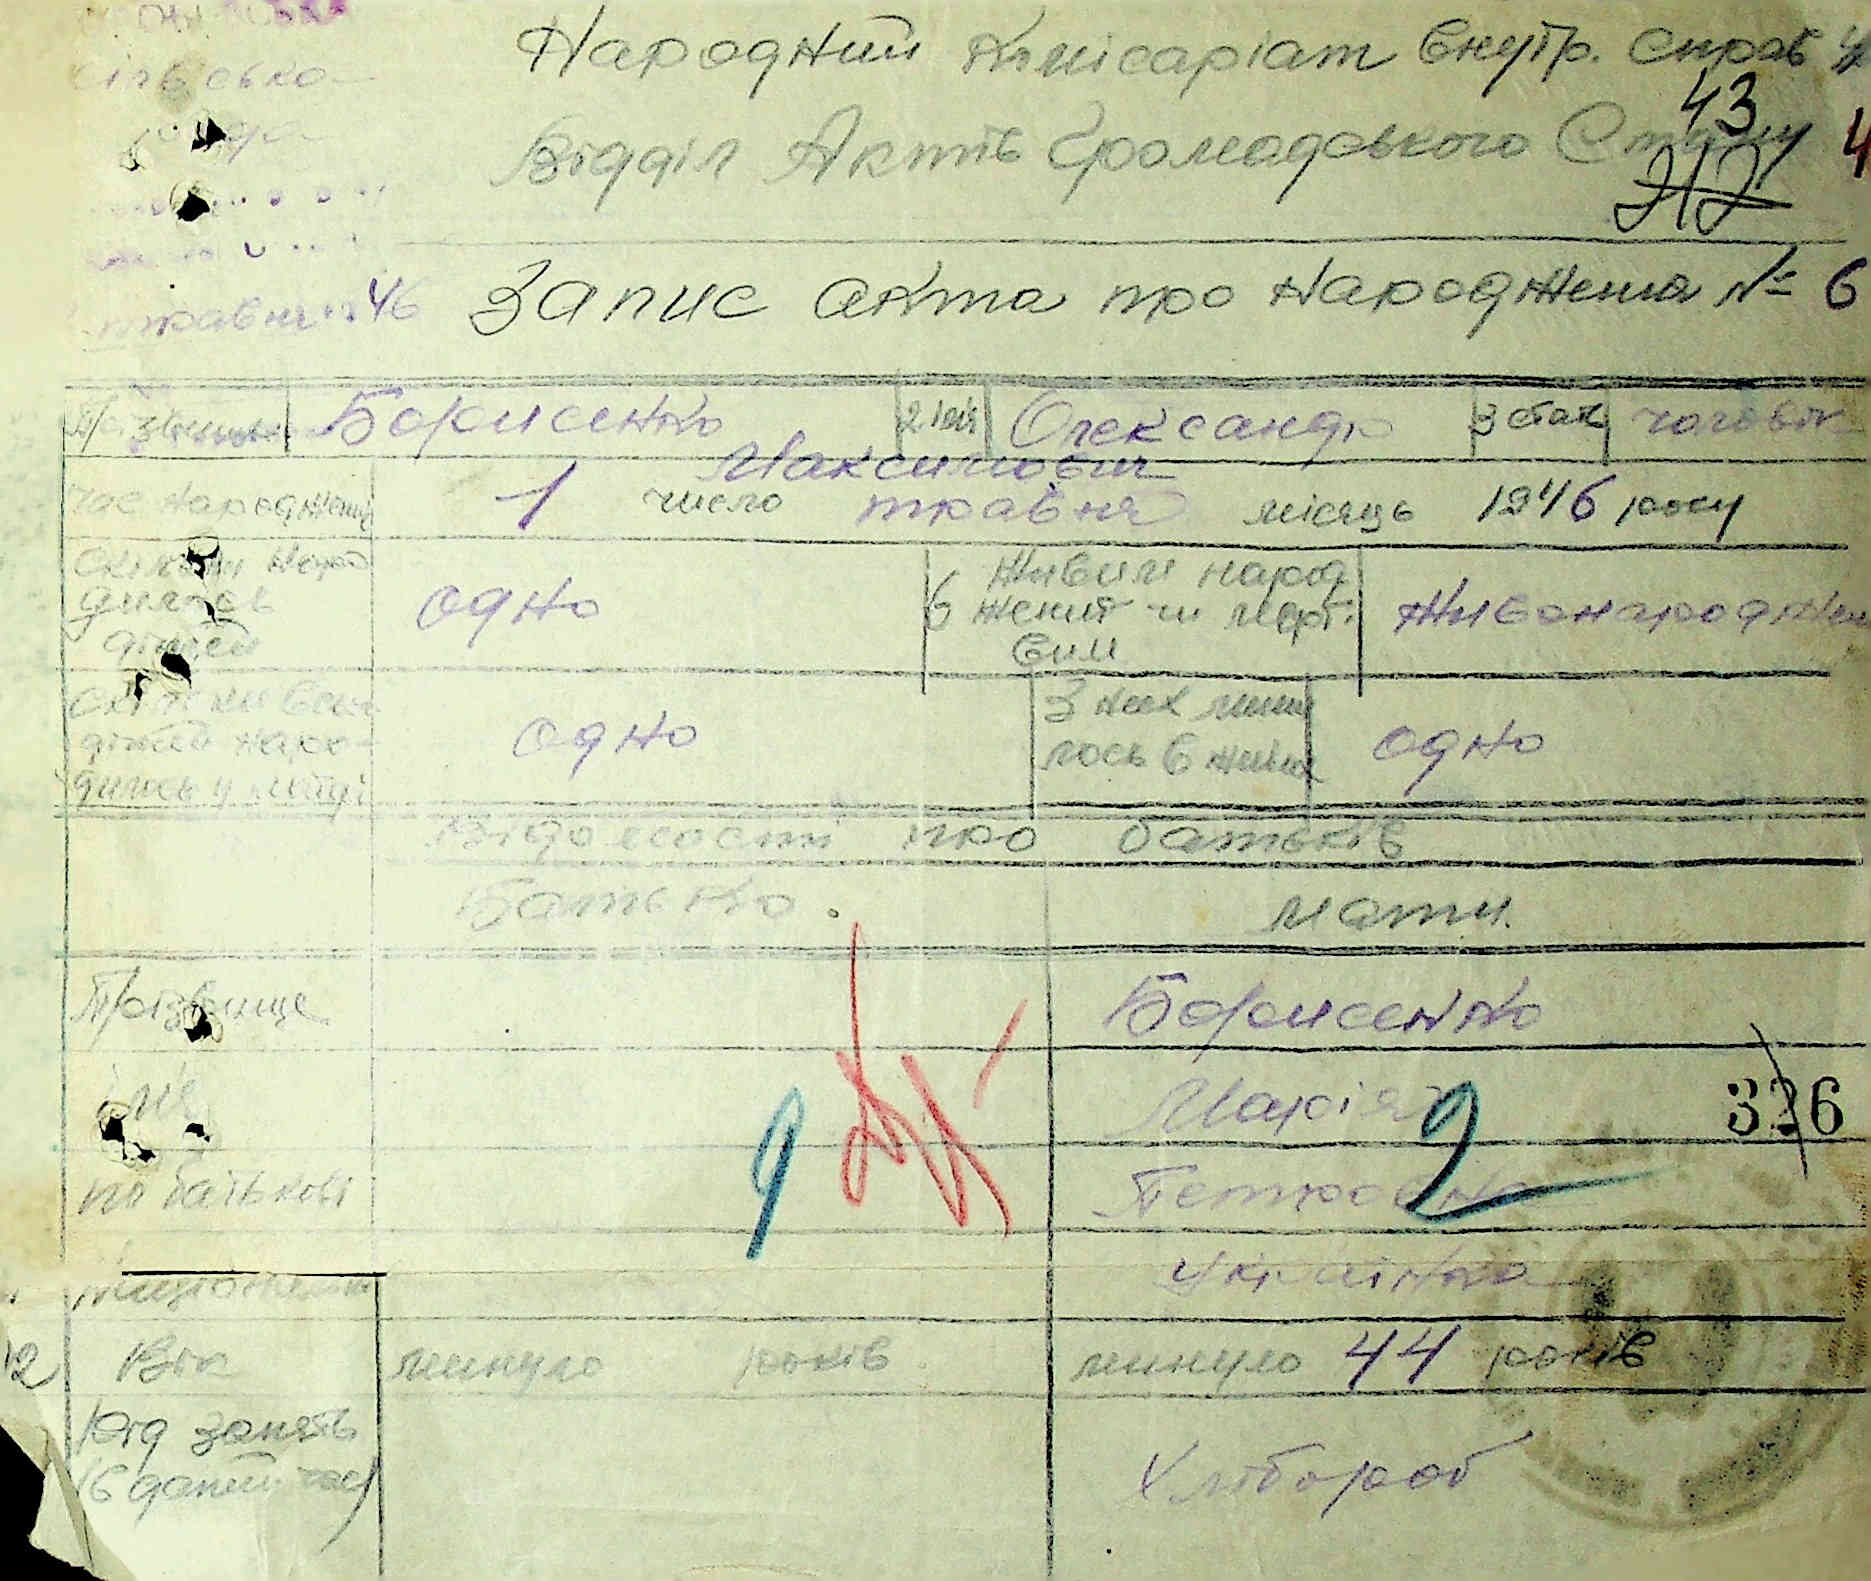 Народний Комісаріат внутр. справ
43
Відділ Актів Громадського Стану
212
сільсько-
травня 46
Запис акта про народження № 6
Прізвище Борисенко 2 імя Олександр 3 стать чоловік
Максимович
час народження 1 число травня місяць 1946 року
скільки народ
дилось
дітей
одно
6 Живим народ
жений чи мерт.
вим
Живонароджен
скільки всіх
дітей наро-
дилось у матері
одно
З них лиши
лось в живих
одно
Відомості про батьків
Батько. мати.
Прізвище Борисенко
імя Марія
326
по батькові Петровна
національн Українка
12 Вік минуло років минуло 44 років
Рід занять
(в даний час)
Хлібороб